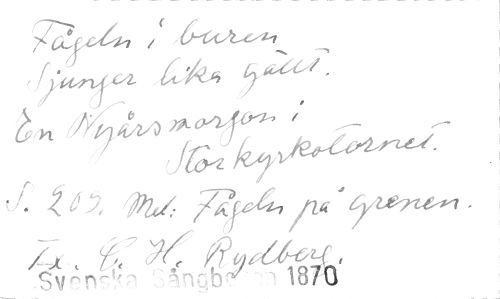 Fågeln i buren
Sjunger lika gällt.
En Nyårsmorgon i
Storkyrkotornet.
S. 209. Mel: Fågeln på grenen.
Ex. C. H. Rydberg.
Svenska Sångbo 1870